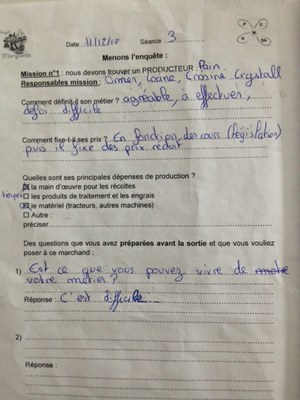 Date 11/12/17 Séance 3
Menons l'enquête :
Mission n°1 : nous devons trouver un PRODUCTEUR Pain
Responsables mission : Omer, Crystall
Comment définit-il son métier ? agréable, à effectuer,
difficile
Comment fixe-t-il ses prix ? En fonction des cours (législation)
puis il fixe des prix réduit
Quelles sont ses principales dépenses de production ?
la main d'œuvre pour les récoltes
les produits de traitement et les engrais
le matériel (tracteurs, autres machines)
Autre :
préciser
Des questions que vous avez préparées avant la sortie et que vous vouliez
poser à ce marchand :
1) Est ce que vous pouvez vivre de
votre métier ?
Réponse : C'est difficile
2)
Réponse :